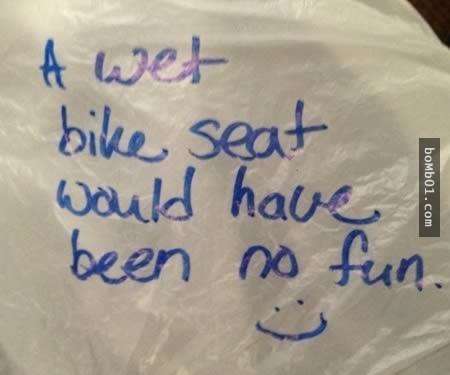 A wet
bike seat
would have
been no fun.
:)
boMb01.com